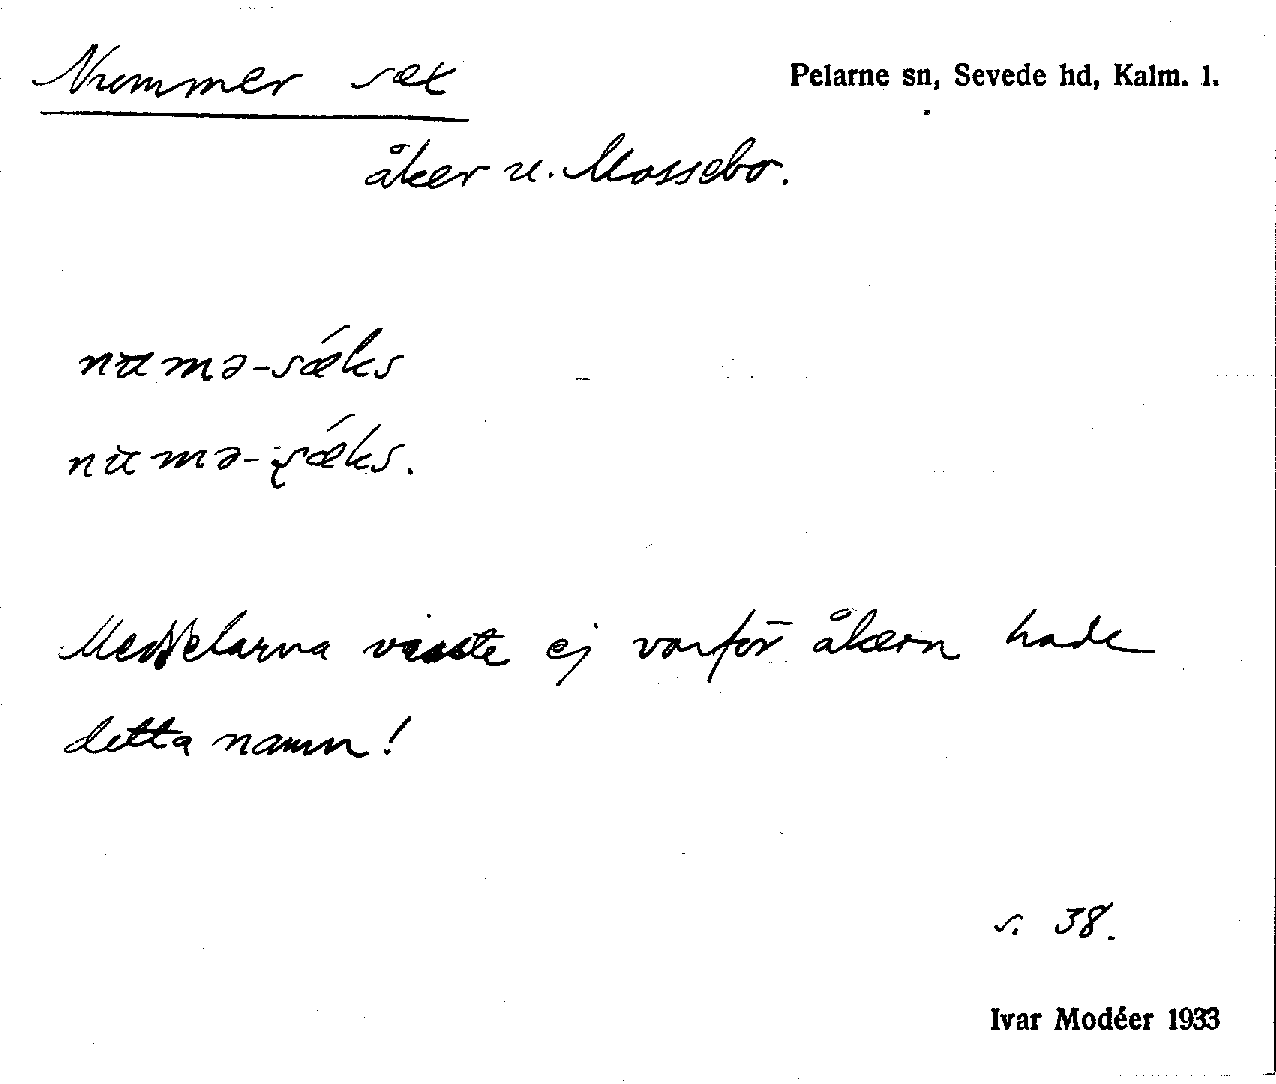 Nummer sex
Pelarne sn, Sevede hd, Kalm. l.
åker u. Mossebo.
numə-sǽks
numə-ʂǽks.
Meddelarna visste ej varför åkern hade
detta namn!
s. 38.
Ivar Modéer 1933